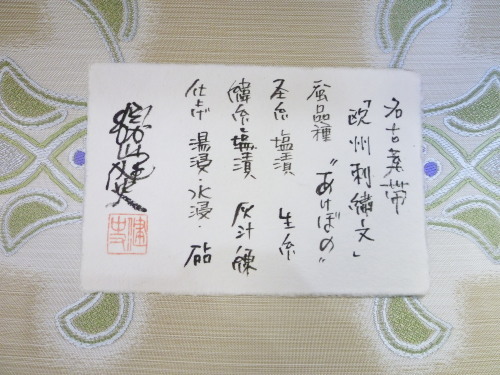 名古屋帯
「欧州刺繍文」
蚕品種 “あけぼの”
経糸・塩漬 生糸
緯糸・塩漬 灰汁練
仕上げ 湯浸・水浸・砧